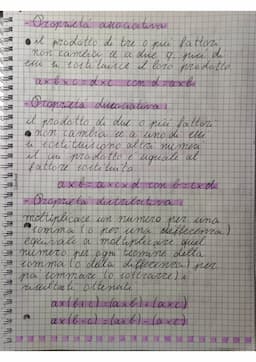 - Proprietà associativa
• il prodotto di tre o più fattori
non cambia se a due o più di
essi si sostituisce il loro prodotto
a×b×c=d×c con d=a×b
- Proprietà dissociativa:
il prodotto di due o più fattori
• non cambia se a uno di essi
si sostituiscono altri numeri
il cui prodotto è uguale al
fattore sostituito
a×b=a×c×d con b=c×d
- Proprietà distributiva:
moltiplicare un numero per una
• somma (o per una differenza)
equivale a moltiplicare quel
numero per ogni termine della
somma (o della differenza) per
poi sommare (o sottrarre) i
risultati ottenuti
a×(b+c)=(a×b)+(a×c)
a×(b-c)=(a×b)-(a×c)